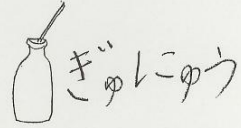 ぎゅにゅう